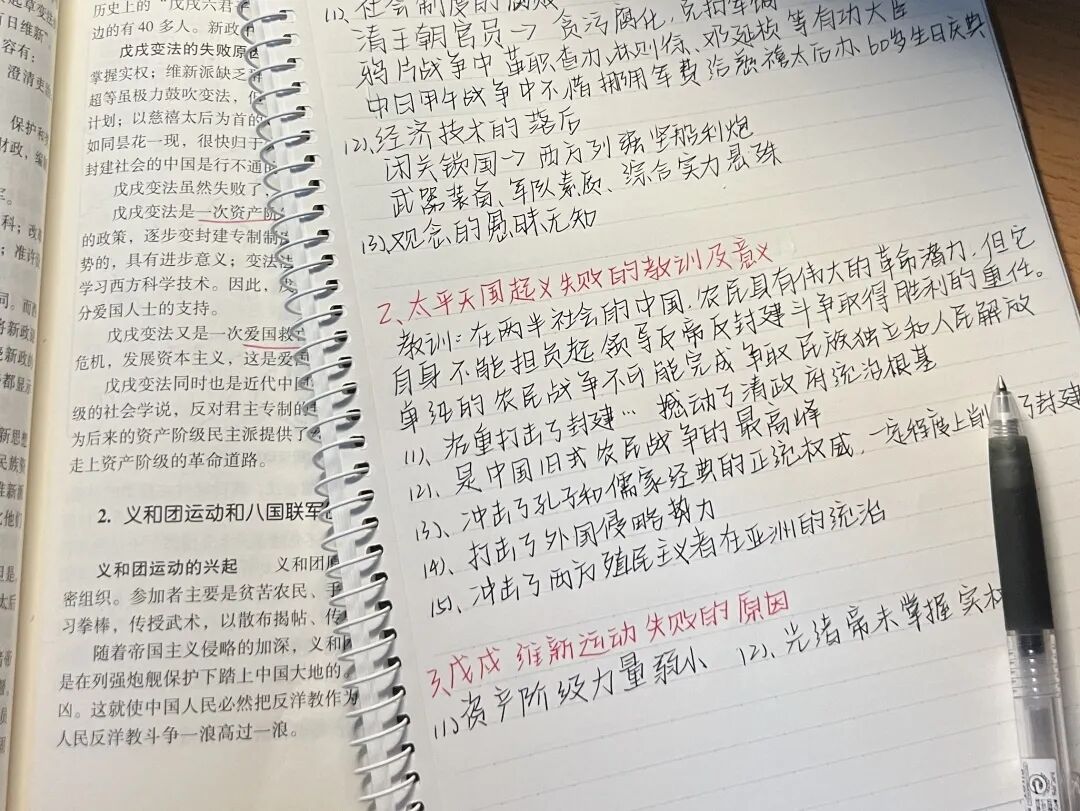 起草变法
日维新"
容有：
澄清吏
保护和
财政，编
科；改
；准许
同。而
将新政
绕新政的
都显示
新思想
民族
维新
他们
但是，
太后
者帝
历史上的"戊戌六君子
边的有40多人。新政
戊戌变法的失败原因
掌握实权；维新派缺乏
超等虽极力鼓吹变法，但
计划；以慈禧太后为首的
如同昙花一现，很快归于
封建社会的中国是行不通的
戊戌变法虽然失败了
戊戌变法是一次资产阶
的政策，逐步变封建专制制
势的，具有进步意义；变法
学习西方科学技术。因此，
分爱国人士的支持。
戊戌变法又是一次爱国救
危机，发展资本主义，这是爱国
戊戌变法同时也是近代中国
级的社会学说，反对君主专制的
为后来的资产阶级民主派提供了
走上资产阶级的革命道路。
2. 义和团运动和八国联军
义和团运动的兴起 义和团原
密组织。参加者主要是贫苦农民、手
习拳棒，传授武术，以散布揭帖、传
随着帝国主义侵略的加深，义和团
是在列强炮舰保护下踏上中国大地的。
凶。这就使中国人民必然把反洋教作为
人民反洋教斗争一浪高过一浪。
(1)、社会制度的腐败
清王朝官员→贪污腐化，克扣军饷
鸦片战争中革职查办林则徐、邓廷桢等有功大臣
中日甲午战争中不惜挪用军费给慈禧太后办60岁生日庆典
(2)、经济技术的落后
闭关锁国→西方列强坚船利炮
武器装备、军队素质、综合实力悬殊
(3)、观念的愚昧无知
2、太平天国起义失败的教训及意义
教训：在两半社会的中国，农民具有伟大的革命潜力，但它
自身不能担负起领导反帝反封建斗争取得胜利的重任。
单纯的农民战争不可能完成争取民族独立和人民解放
(1)、沉重打击了封建… 撼动了清政府统治根基
(2)、是中国旧式农民战争的最高峰
(3)、冲击了孔子和儒家经典的正统权威，一定程度上削 了封建
(4)、打击了外国侵略势力
(5)、冲击了西方殖民主义者在亚洲的统治
3、戊戌维新运动失败的原因
(1)、资产阶级力量弱小 (2)、光绪帝未掌握实权